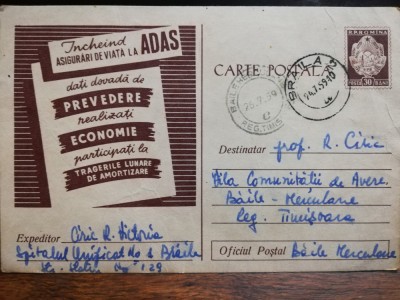 Încheind
ASIGURĂRI DE VIAȚĂ LA ADAS
dați dovadă de
PREVEDERE
realizați
ECONOMIE
participați la
TRAGERILE LUNARE
DE AMORTIZARE
R.P.ROMINA
CARTE POȘTALĂ
BRĂILA
24.7.59
26.7.59
REG. TIMIȘ
30 BANI
Destinatar prof. R. Ciric
Vila Comunității de Avere
Băile-Herculane
Reg. Timișoara
Expeditor Ciric R. Victoria
Spitalul Unificat No 1 Brăila
No 129
Oficiul Poștal Băile Herculane